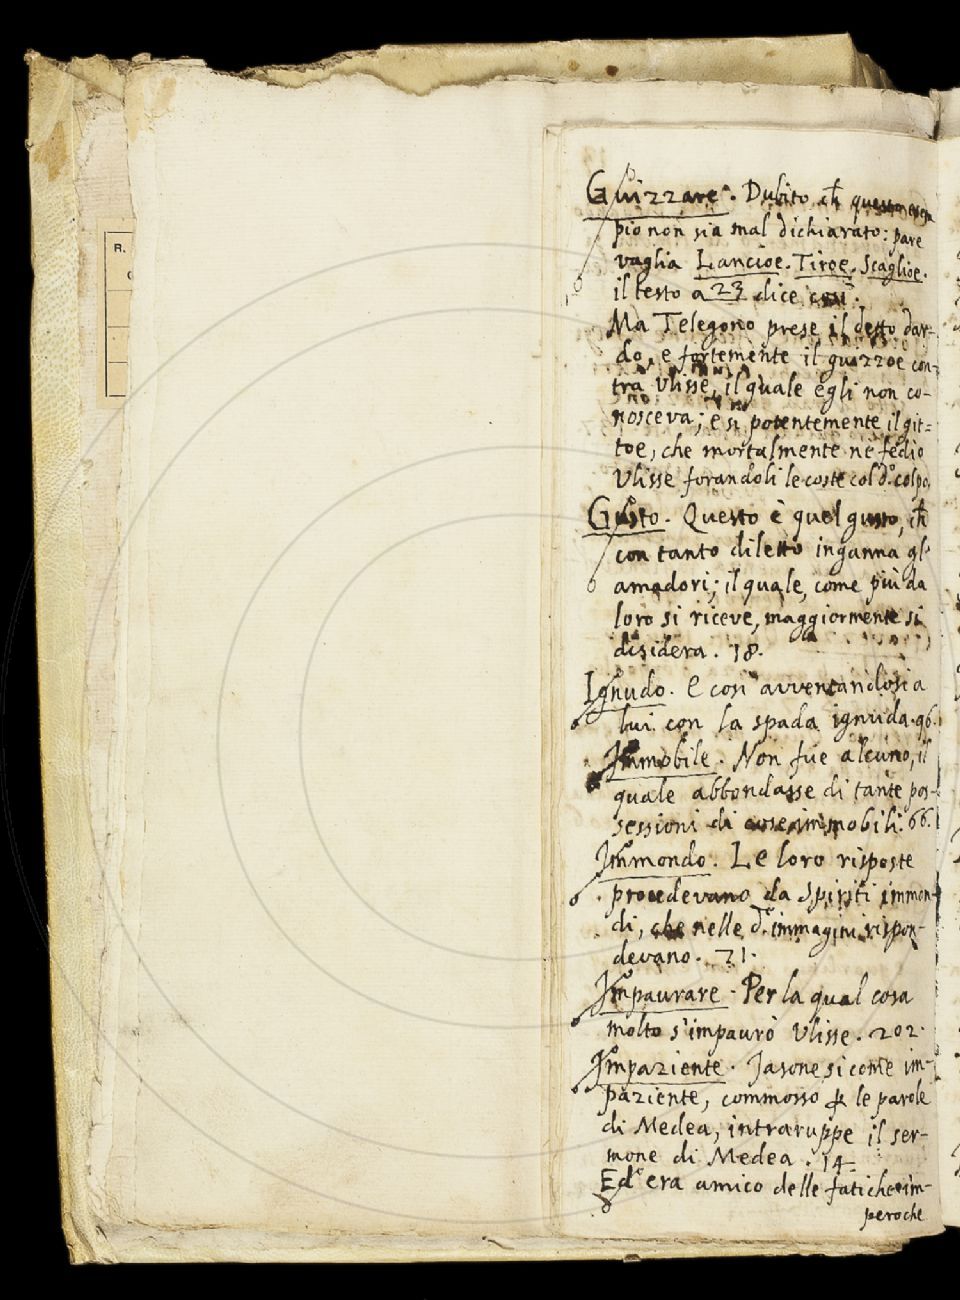 R.
Guizzare. Dubito ch̃ questo esem
pio non sia mal dichiarato: pare
vaglia Lancioe. Tiroe. Scaglioe.
il testo a 23 dice così.
Ma Telegono prese il detto dar-
do, e fortemente il guizzoe con-
tra Vlisse, il quale egli non co-
nosceva; e si potentemente il git=
toe, che mortalmente ne fedio
Vlisse forandoli le coste col d.º colpo.
Gusto. Questo è quel gusto, ch̃
con tanto diletto inganna gl'
amadori; il quale, come più da
loro si riceve, maggiormente si
disidera. 18.
Ignudo. E così avventandosi a
lui con la spada ignuda. 96.
Immobile. Non fue alcuno, il
quale abbondasse di tante pos-
sessioni di cose immobili. 66.
Immondo. Le loro risposte
procedevano da Spiriti immon-
di, che nelle d.e immagini rispon-
devano. 71.
Impaurare. Per la qual cosa
molto s'impaurò Vlisse. 202.
Impaziente. Jasone si come im-
paziente, commosso ꝑ le parole
di Medea, intraruppe il ser-
mone di Medea. 14
Ed era amico delle fatiche im-
peroche